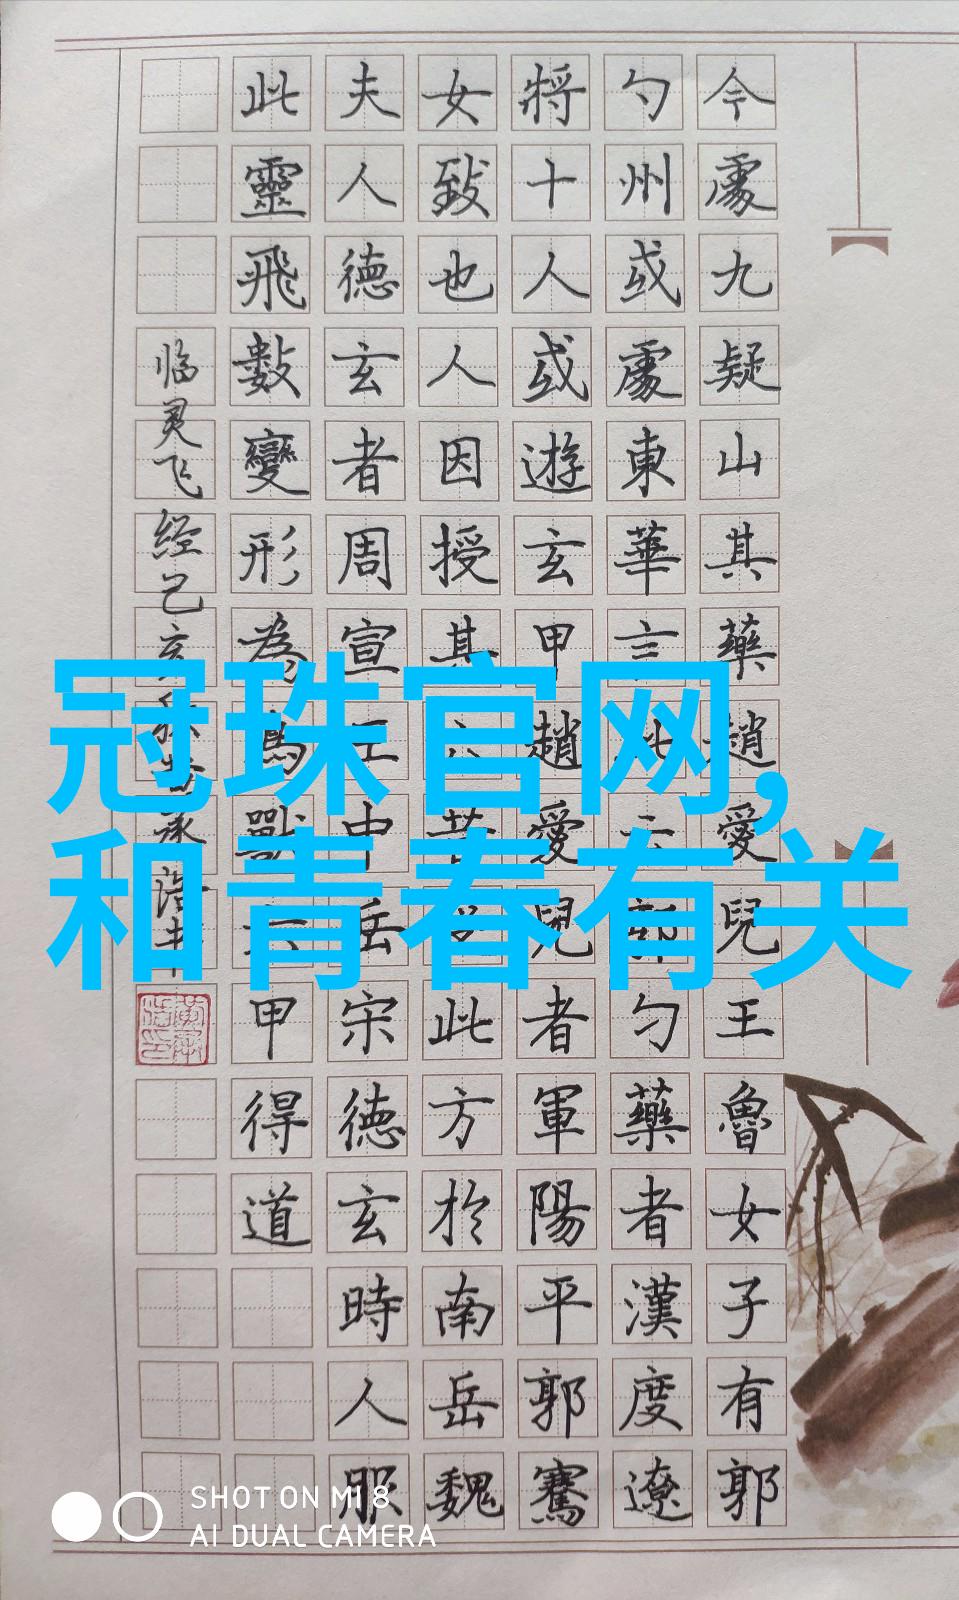 今處九疑山其藥趙愛兒王魯女子有郭
勺州或處東華言此云郭勺藥者漢度遼
將十人或遊玄甲趙愛兒者軍陽平郭騫
女致也人因授其六甲此方於南岳魏
夫人德玄者周宣王中岳宋德玄時人服
此靈飛數變形為鳥獸六甲得道
临灵飞经己亥
冠珠官网,
和青春有关
SHOT ON MI 8
AI DUAL CAMERA